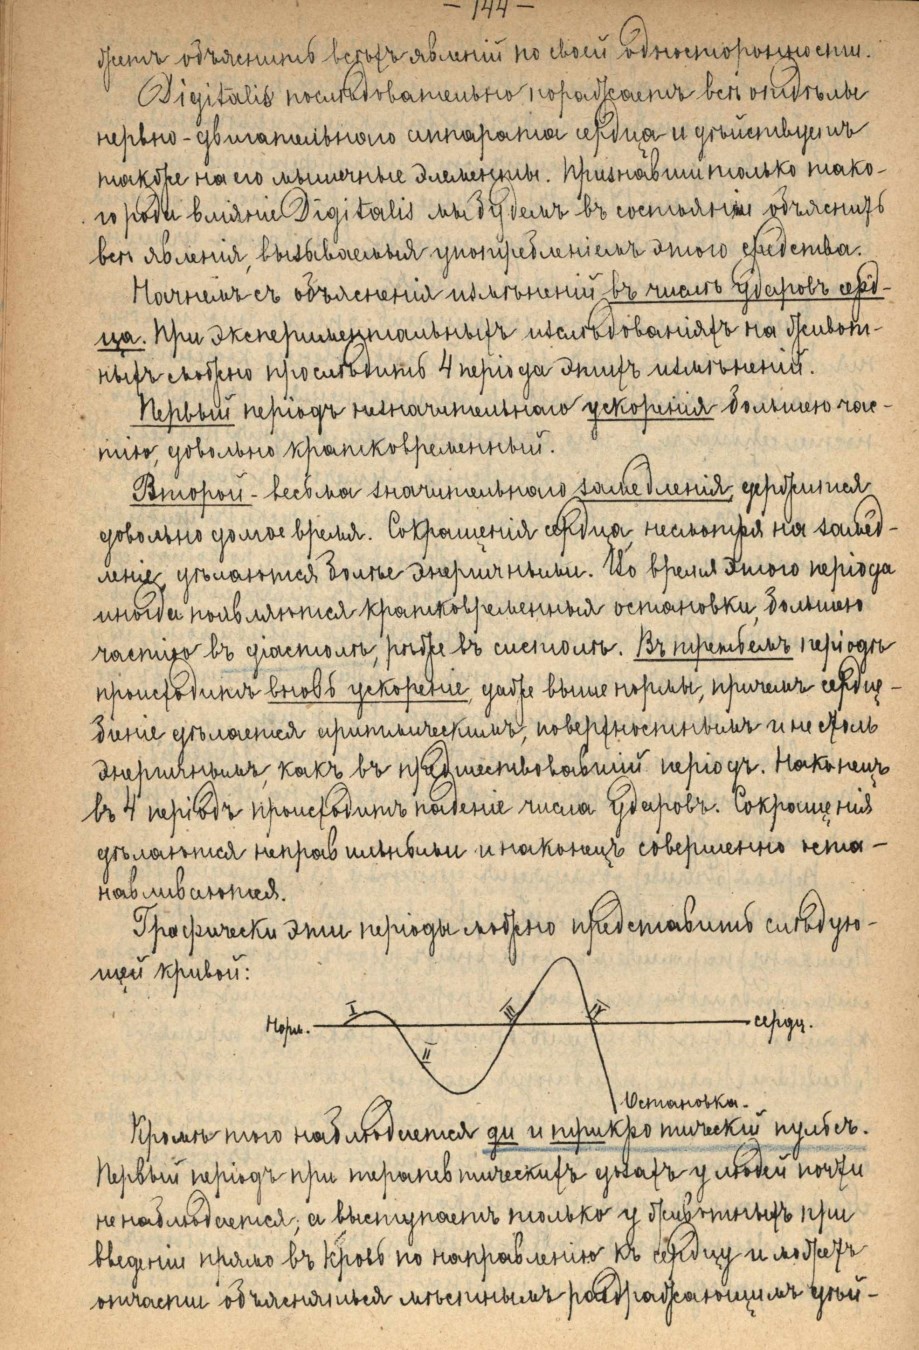 — 144 —
жетъ объяснить всѣхъ явленій по своей односторонности.
Digitalis послѣдовательно поражаетъ всѣ отдѣлы
нервно-двигательнаго аппарата сердца и дѣйствуетъ
также на его мышечные элементы. Признавши только тако-
го рода вліяніе Digitalis мы будемъ въ состояніи объяснить
всѣ явленія, вызываемыя употребленіемъ этого средства.
Начнемъ съ объясненія измѣненій въ числѣ ударовъ серд-
ца. При экспериментальныхъ изслѣдованіяхъ на живот-
ныхъ можно прослѣдить 4 періода этихъ измѣненій.
Первый періодъ незначительнаго ускоренія большею час-
тію, довольно кратковременный.
Второй - весьма значительнаго замедленія, держится
довольно долгое время. Сокращенія сердца, несмотря на замед-
леніе, дѣлаются болѣе энергичными. Во время этого періода
иногда появляются кратковременныя остановки, большею
частію въ діастолѣ, рѣже въ систолѣ. Въ третьемъ періодѣ
происходитъ вновь ускореніе, даже выше нормы, причемъ сердце-
біеніе дѣлается аритмическимъ, поверхностнымъ и не столь
энергичнымъ, какъ въ предшествовавшій періодъ. Наконецъ
въ 4 періодъ происходитъ паденіе числа ударовъ. Сокращенія
дѣлаются неправильными и наконецъ совершенно оста-
навливаются.
Графически эти періоды можно представить слѣдую-
щей кривой:
I
II
III
IV
Норм.
сердц.
Остановка.
Кромѣ того наблюдается ди и трикротическій пульсъ.
Первый періодъ при терапевтическихъ дозахъ у людей почти
не наблюдается, а выступаетъ только у животныхъ при
введеніи прямо въ кровь по направленію къ сердцу и можетъ
отчасти объясняться мѣстнымъ раздражающимъ дѣй-